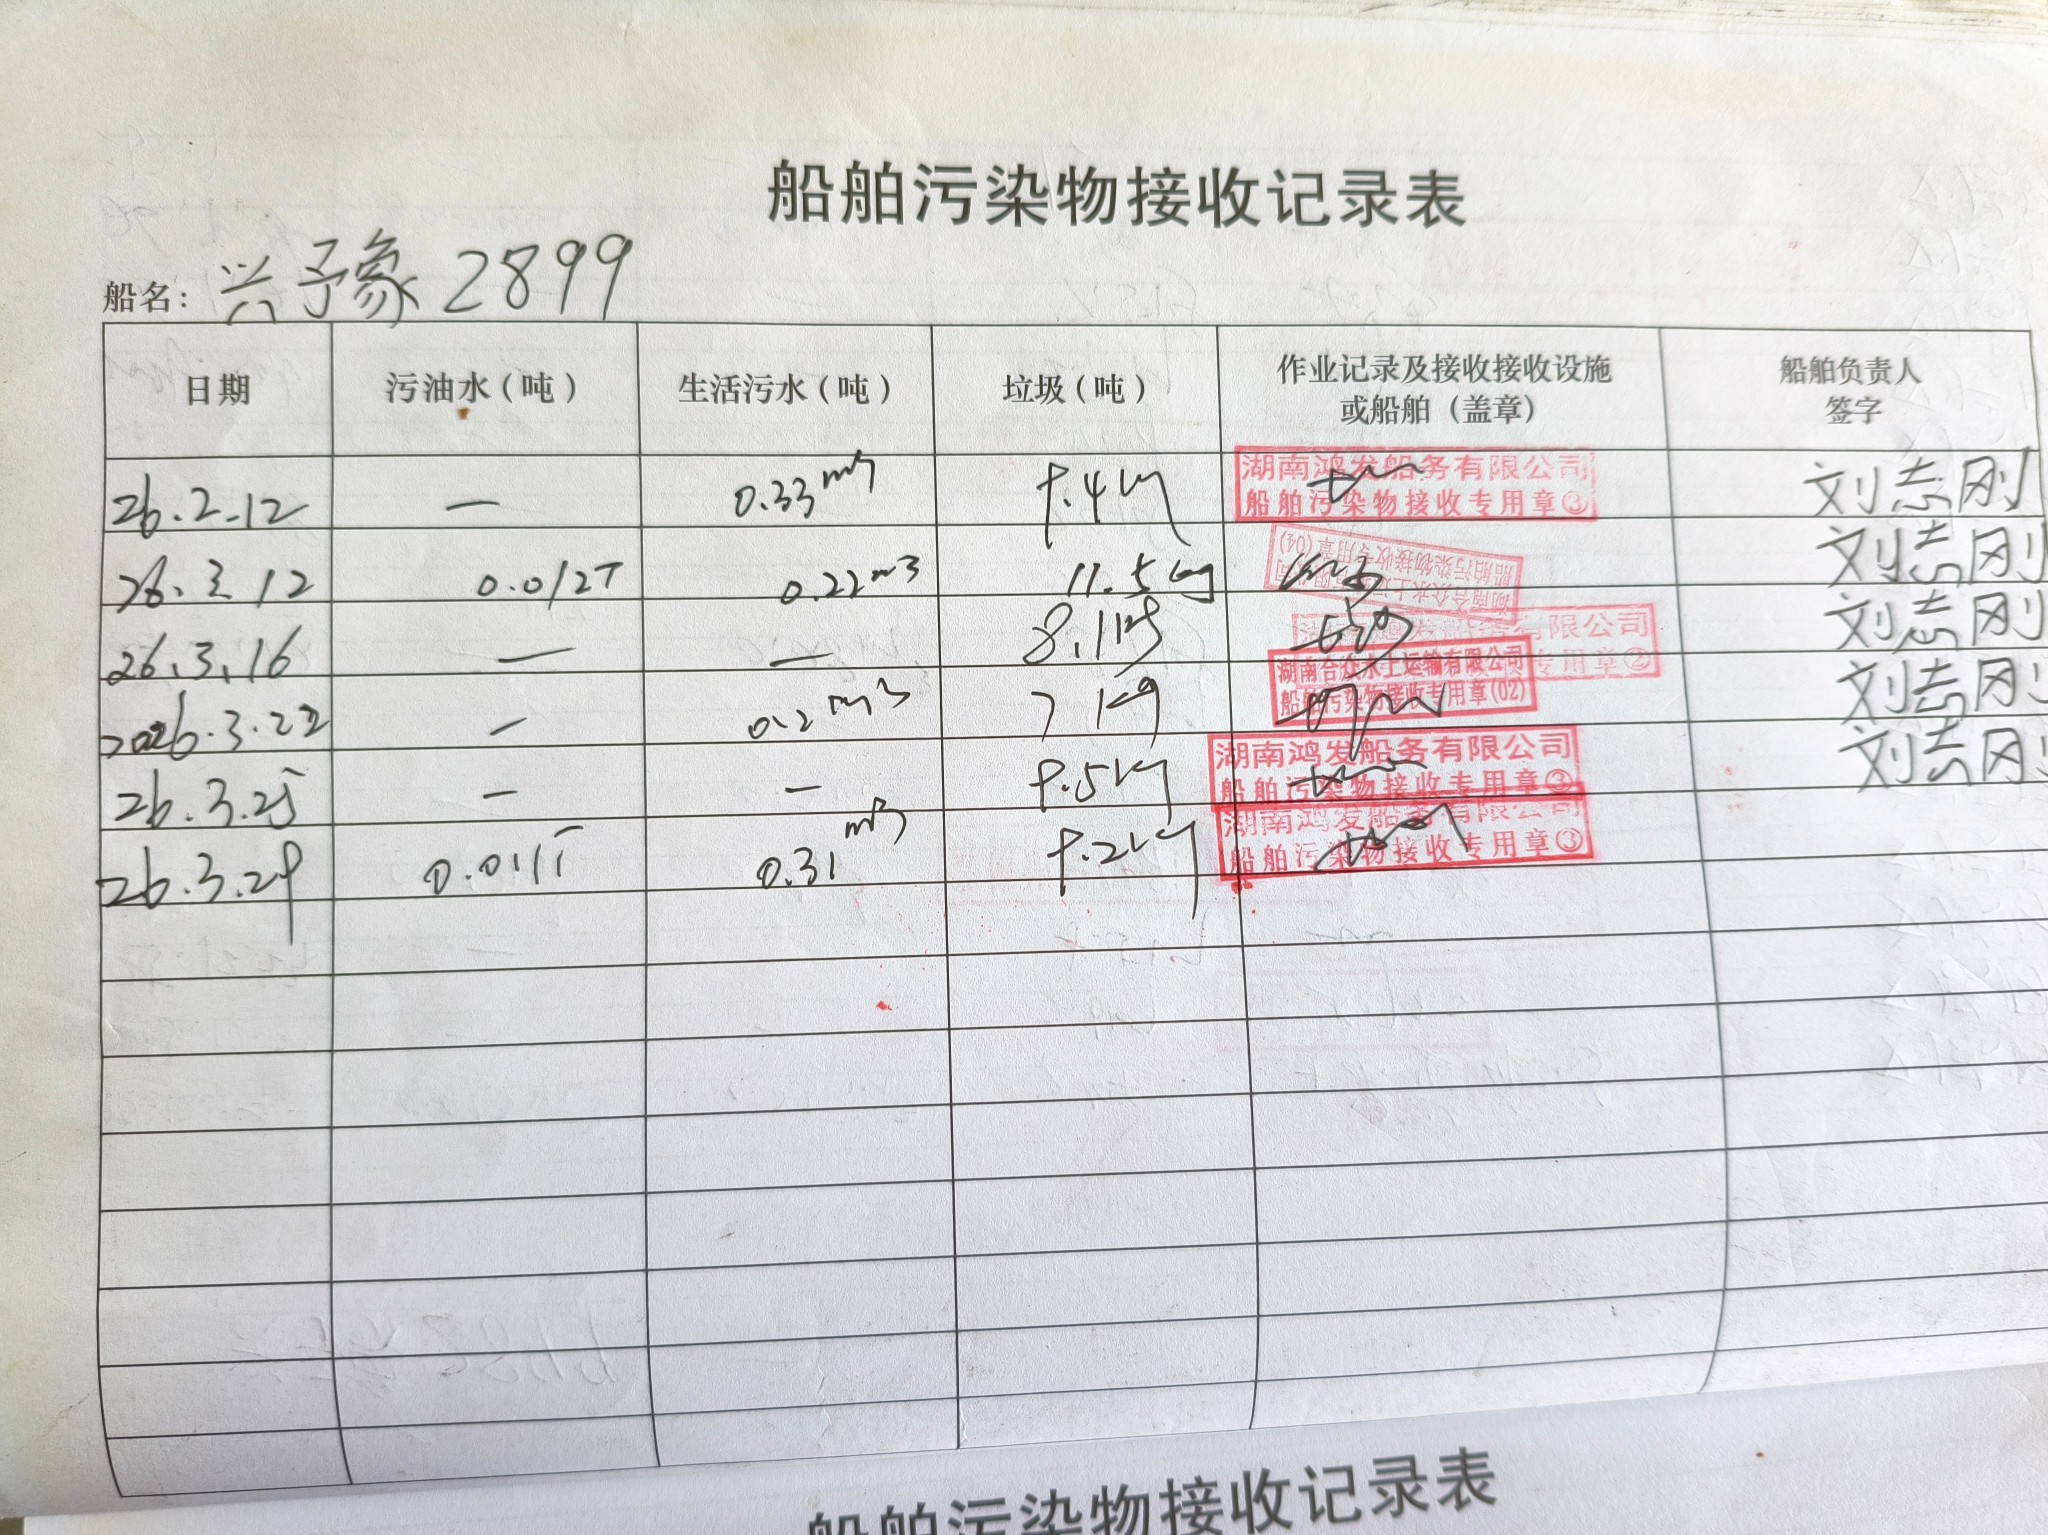 船舶污染物接收记录表
船名: 兴予象 2899
日期 污油水（吨） 生活污水（吨） 垃圾（吨） 作业记录及接收接收设施或船舶（盖章） 船舶负责人签字
26.2.12 — 0.33m³ 9.4kg 湖南鸿发船务有限公司 船舶污染物接收专用章③ 刘志刚
26.3.12 0.012T 0.22m³ 11.5kg 船舶污染物接收专用章(04) 刘志刚
26.3.16 — — 8.1kg 有限公司 专用章② 刘志刚
2026.3.22 — 0.2m³ 7kg 湖南合众水上运输有限公司 船舶污染物接收专用章(02) 刘志刚
26.3.25 — — 9.5kg 湖南鸿发船务有限公司 船舶污染物接收专用章③ 刘志刚
26.3.29 0.011T 0.31m³ 9.2kg 湖南鸿发船务有限公司 船舶污染物接收专用章③
船舶污染物接收记录表